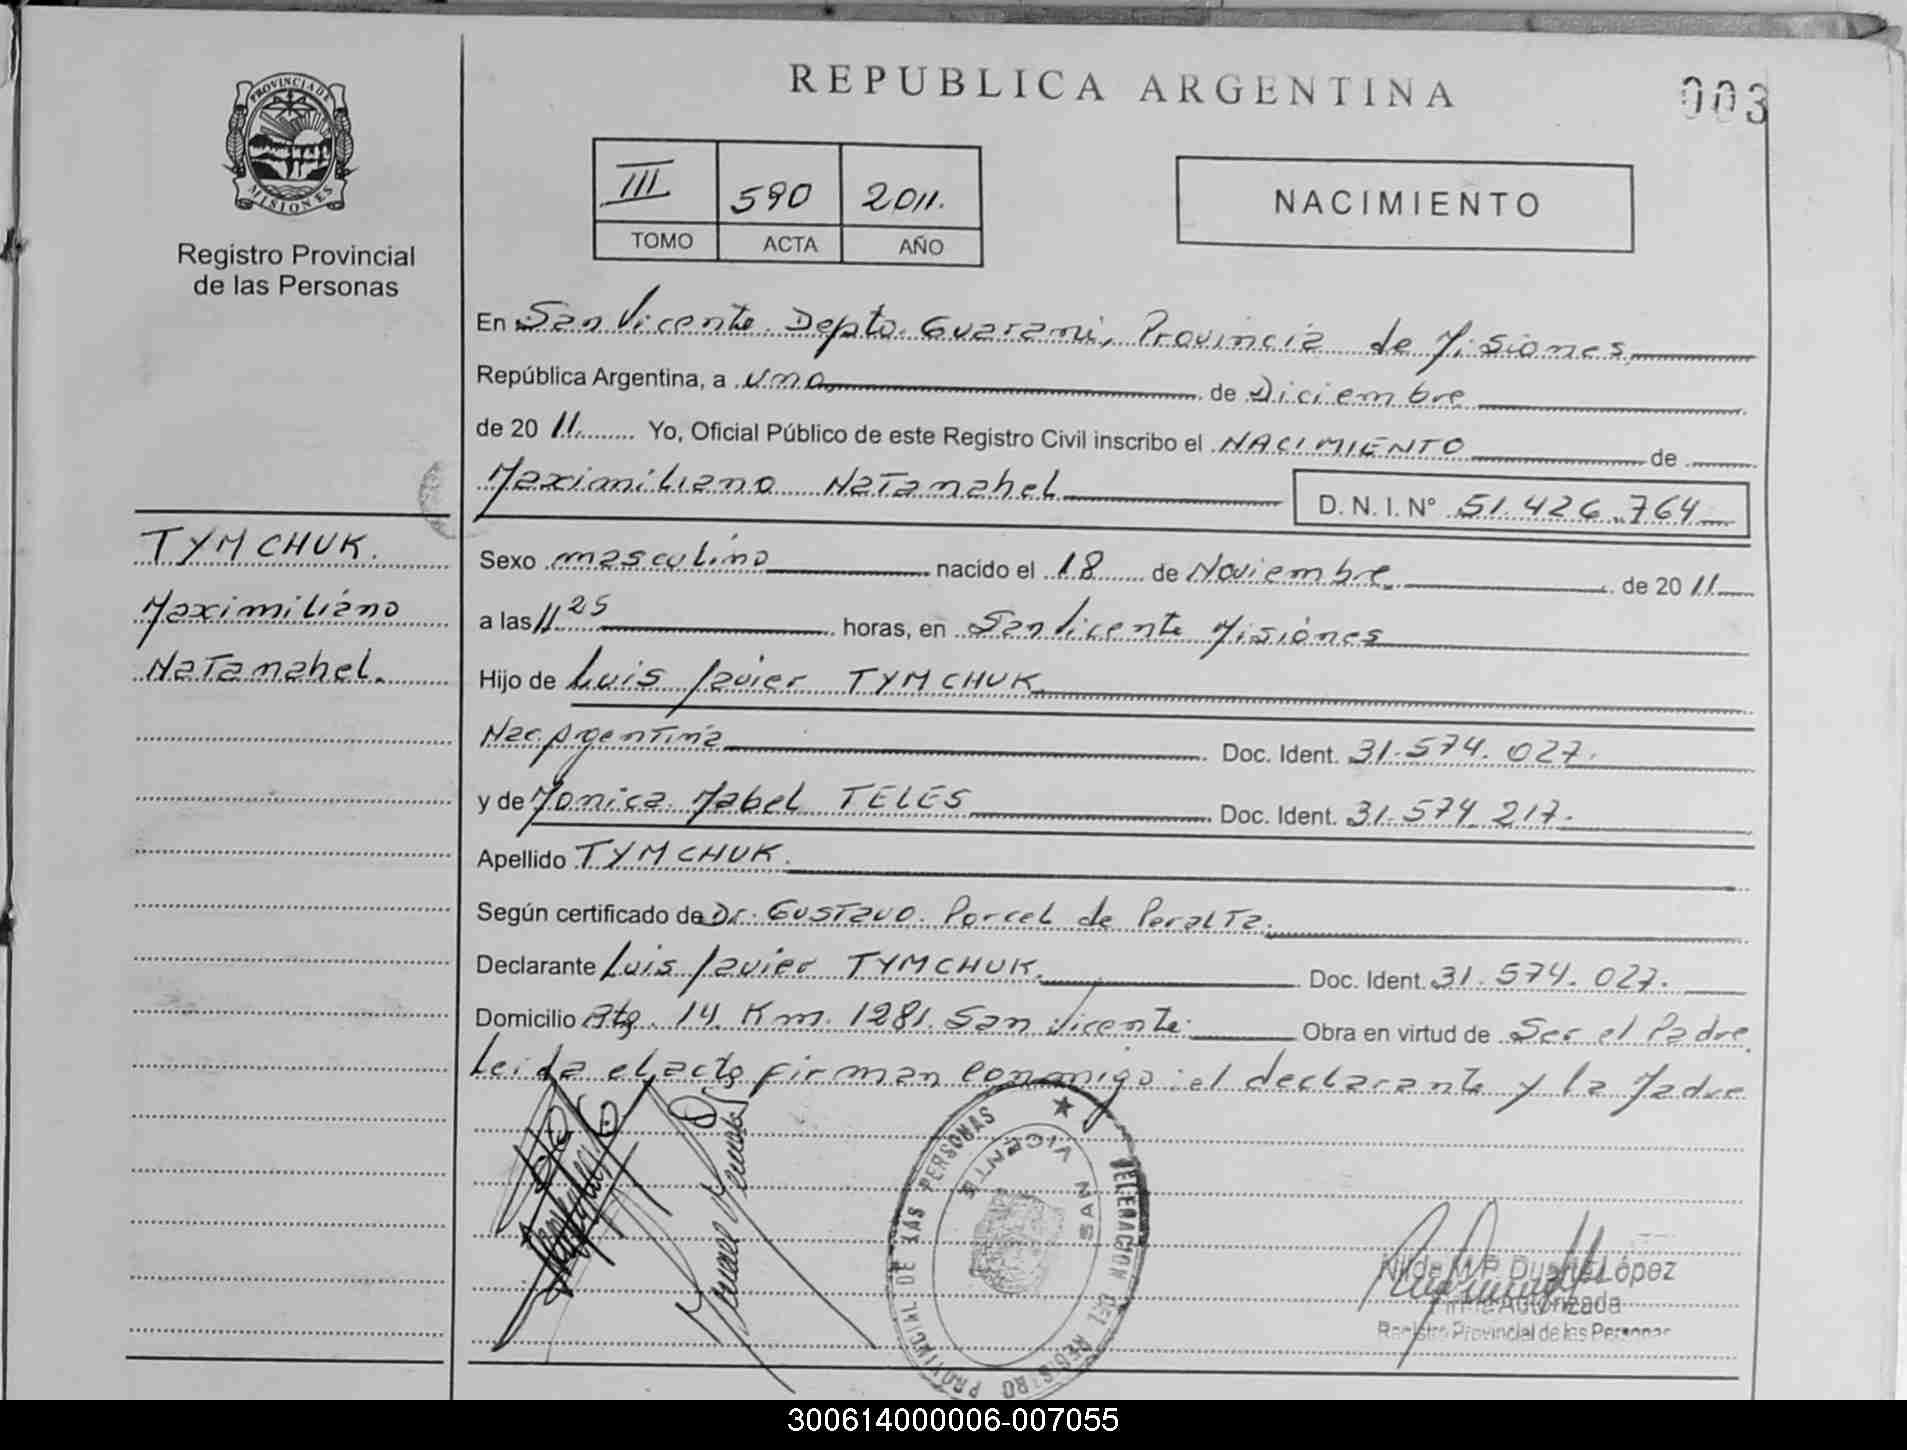 REPUBLICA ARGENTINA
003
PROVINCIA DE
MISIONES
Registro Provincial
de las Personas
III 590 2011.
TOMO ACTA AÑO
NACIMIENTO
En San Vicente Depto. Guarani, Provincia de Misiones
República Argentina, a uno de Diciembre
de 20 11 Yo, Oficial Público de este Registro Civil inscribo el NACIMIENTO de
Maximiliano Natanahel D. N. I. N° 51.426.764
TYMCHUK.
Maximiliano
Natanahel.
Sexo masculino nacido el 18 de Noviembre de 20 11
a las 11 25 horas, en San Vicente Misiones
Hijo de Luis Javier TYMCHUK
Nac. Argentina Doc. Ident. 31.574.027.
y de Monica Mabel TELES Doc. Ident. 31.574.217.
Apellido TYMCHUK.
Según certificado de Dr. Gustavo Porcel de Peralta.
Declarante Luis Javier TYMCHUK. Doc. Ident. 31.574.027.
Domicilio Rta. 14 Km. 1281 San Vicente Obra en virtud de Ser el Padre.
Leida el acta firman conmigo: el declarante y la Madre
DELEGACION DEL REGISTRO PROVINCIAL DE LAS PERSONAS
SAN VICENTE
Nilda M.P. Duarte López
Firma Autorizada
Registro Provincial de las Personas
300614000006-007055